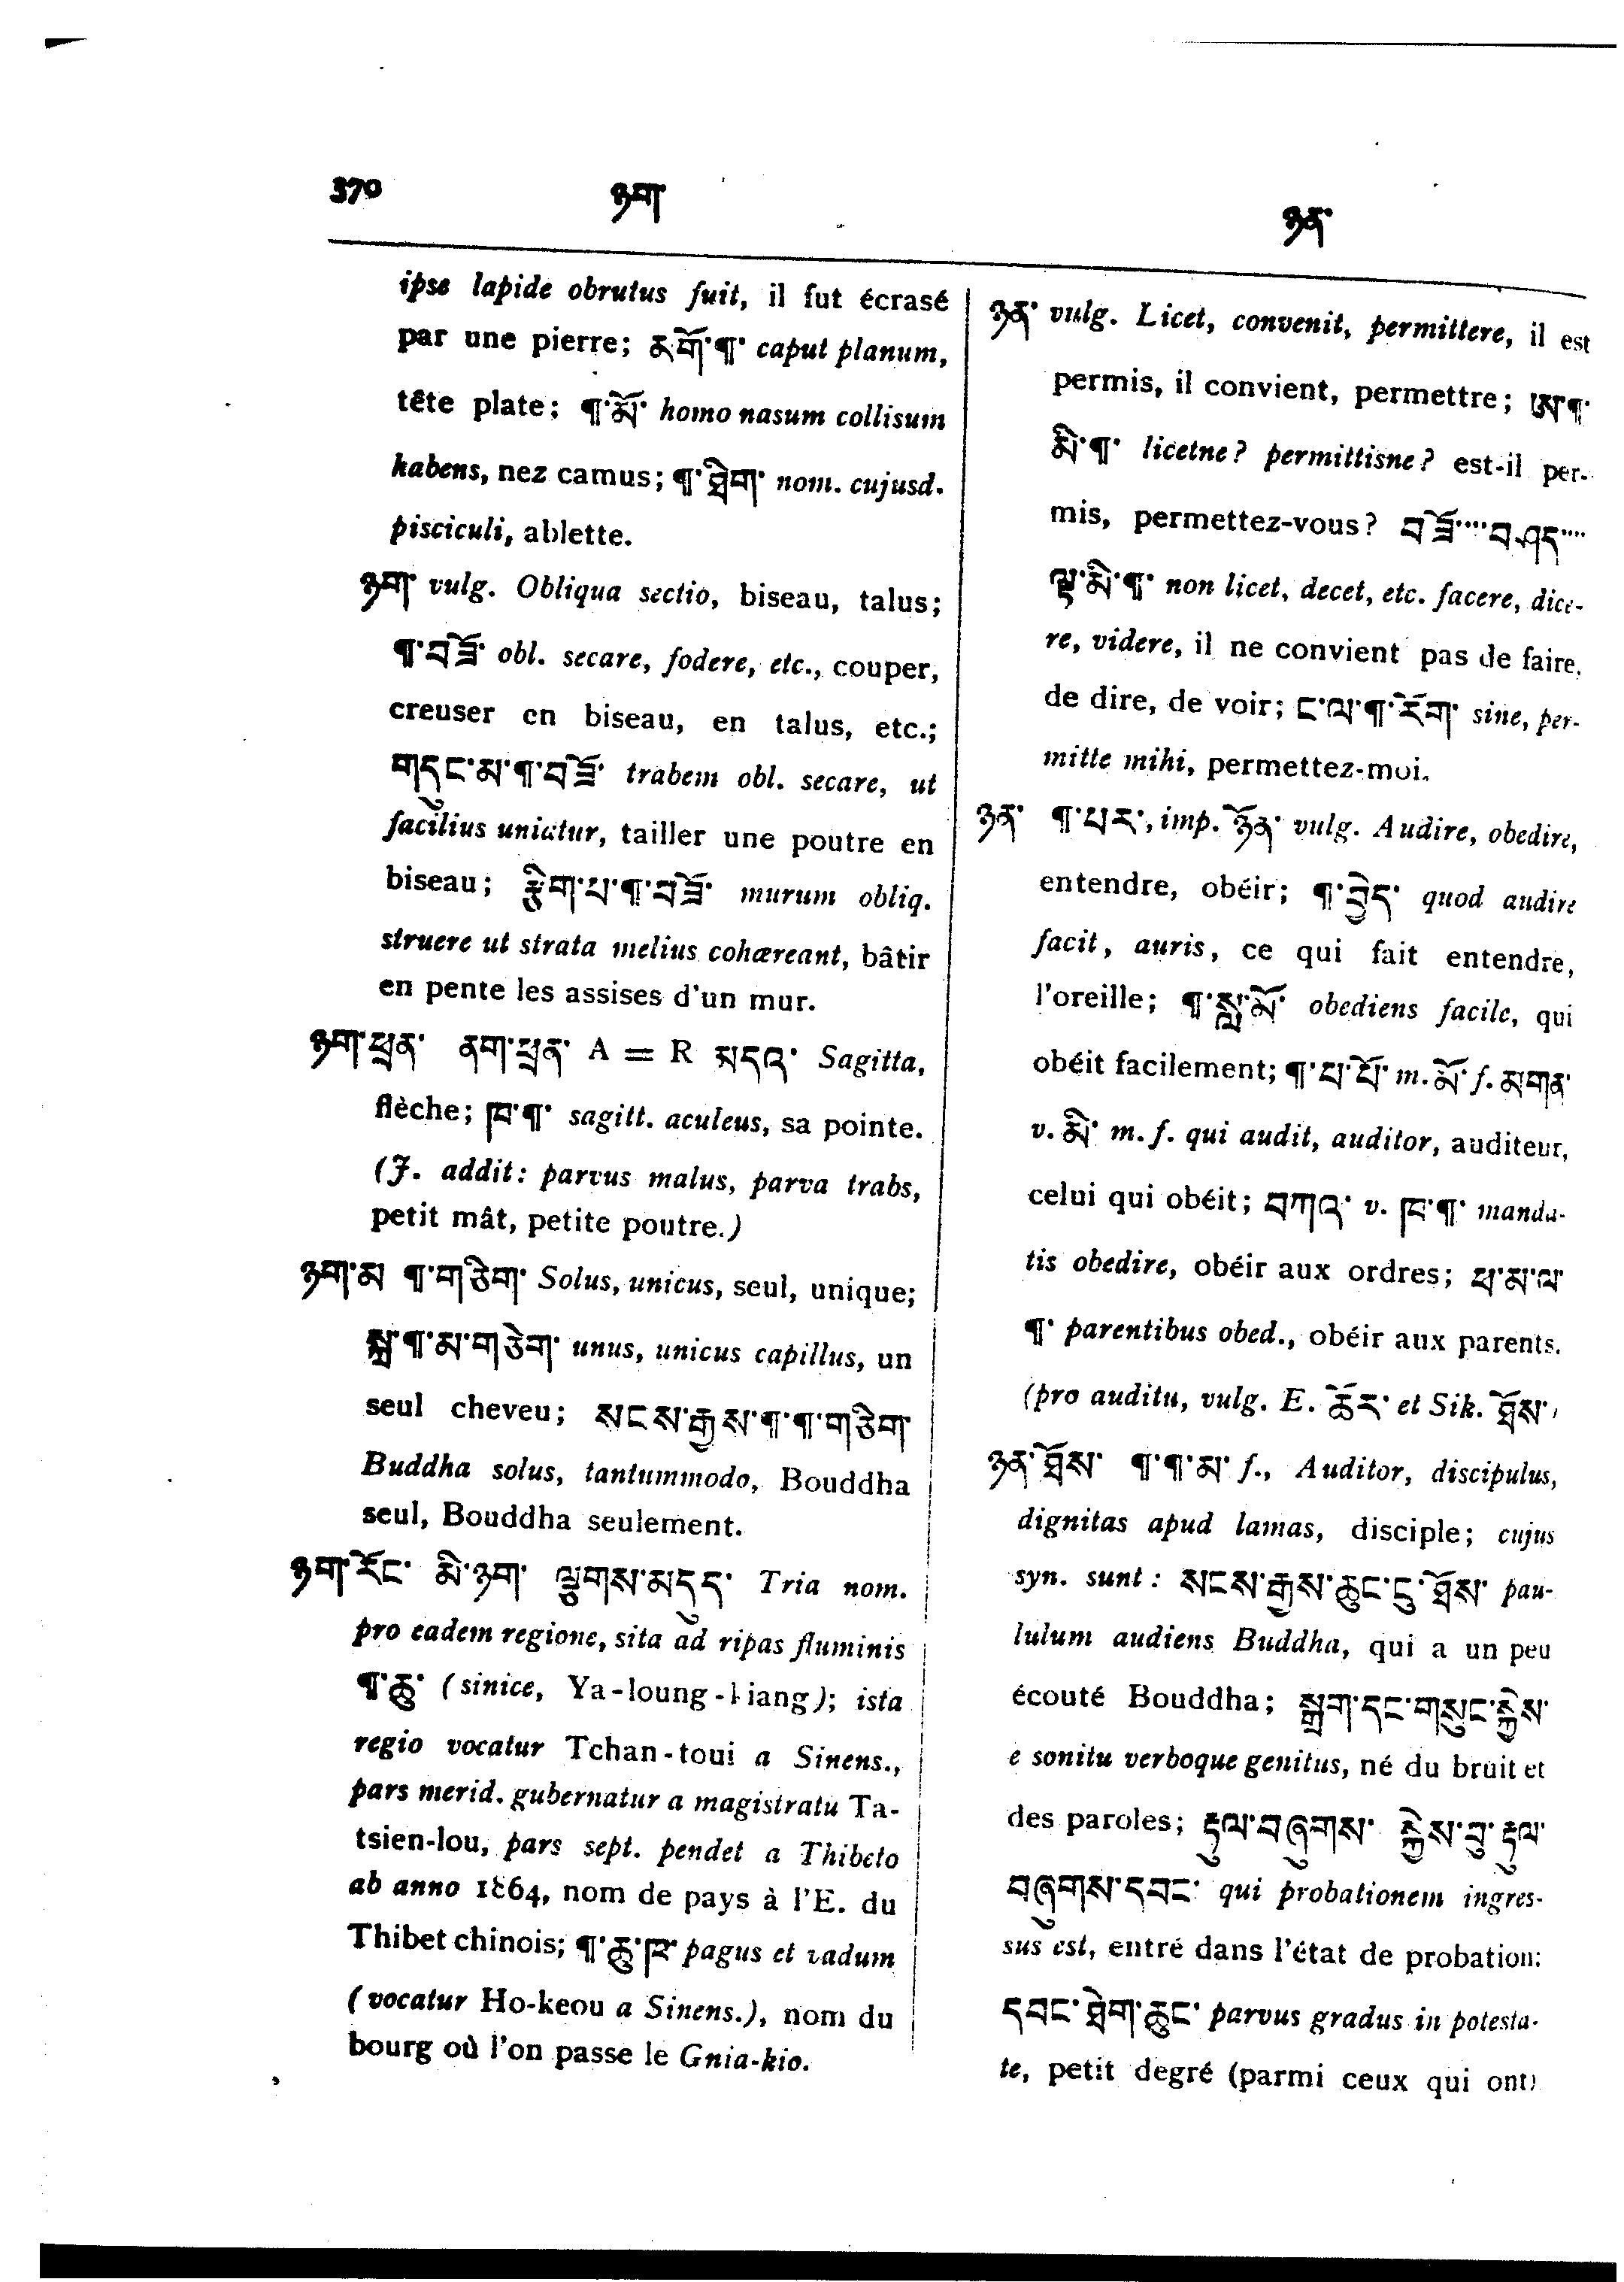 370
ཉག་
ཉན་
ipse lapide obrutus fuit, il fut écrasé
par une pierre; མགོ་¶་ caput planum,
tête plate; ¶་མོ་ homo nasum collisum
habens, nez camus; ¶་ཐིག་ nom. cujusd.
pisciculi, ablette.
ཉག་ vulg. Obliqua sectio, biseau, talus;
¶་བཟོ་ obl. secare, fodere, etc., couper,
creuser en biseau, en talus, etc.;
གདུང་མ་¶་བཟོ་ trabem obl. secare, ut
facilius uniatur, tailler une poutre en
biseau; རྩིག་པ་¶་བཟོ་ murum obliq.
struere ut strata melius cohæreant, bâtir
en pente les assises d'un mur.
ཉག་ཕྲན་ ནག་ཕྲན་ A = R མདའ་ Sagitta,
flèche; ཁ་¶་ sagitt. aculeus, sa pointe.
(J. addit: parvus malus, parva trabs,
petit mât, petite poutre.)
ཉག་མ ¶་གཅིག་ Solus, unicus, seul, unique;
སྐྲ་¶་མ་གཅེག་ unus, unicus capillus, un
seul cheveu; སངས་རྒྱས་¶་¶་གཅིག་
Buddha solus, tantummodo, Bouddha
seul, Bouddha seulement.
ཉག་རོང་ མི་ཉག་ ལྕགས་མདུད་ Tria nom.
pro eadem regione, sita ad ripas fluminis
¶་ཆུ་ (sinice, Ya-loung-kiang); ista
regio vocatur Tchan-toui a Sinens.,
pars merid. gubernatur a magistratu Ta-
tsien-lou, pars sept. pendet a Thibeto
ab anno 1864, nom de pays à l'E. du
Thibet chinois; ¶་ཆུ་ཁ་ pagus et vadum
(vocatur Ho-keou a Sinens.), nom du
bourg où l'on passe le Gnia-kio.
ཉན་ vulg. Licet, convenit, permittere, il est
permis, il convient, permettre; ཨ་¶་
མི་¶་ licetne? permittisne? est-il per-
mis, permettez-vous? བཟོ་་་་བཤད་་་་
ལྟ་མི་¶་ non licet, decet, etc. facere, dice-
re, videre, il ne convient pas de faire,
de dire, de voir; ང་ལ་¶་རོག་ sine, per-
mitte mihi, permettez-moi.
ཉན་ ¶་པར་, imp. ཉོན་ vulg. Audire, obedire,
entendre, obéir; ¶་བྱེད་ quod audire
facit, auris, ce qui fait entendre,
l'oreille; ¶་སླ་མོ་ obediens facile, qui
obéit facilement; ¶་པ་པོ་ m. མོ་ f. མགན་
v. མི་ m. f. qui audit, auditor, auditeur,
celui qui obéit; བཀའ་ v. ཁ་¶་ manda-
tis obedire, obéir aux ordres; ཕ་མ་ལ་
¶་ parentibus obed., obéir aux parents.
(pro auditu, vulg. E. ཚོར་ et Sik. ཐོས་)
ཉན་ཐོས་ ¶་¶་མ་ f., Auditor, discipulus,
dignitas apud lamas, disciple; cujus
syn. sunt: སངས་རྒྱས་ཆུང་ངུ་ཐོས་ pau-
lulum audiens Buddha, qui a un peu
écouté Bouddha; སྒྲག་དང་གསུང་སྐྱེས་
e sonitu verboque genitus, né du bruit et
des paroles; རྡུལ་བཞུགས་ སྐྱེས་བུ་རྡུལ་
བཞུགས་དབང་ qui probationem ingres-
sus est, entré dans l'état de probation:
དབང་ཐེག་ཆུང་ parvus gradus in potesta-
te, petit degré (parmi ceux qui ont)